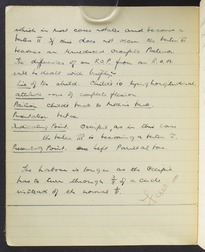 which in most cases rotates and becomes a
Vertex II. If this does not occur the Vertex III
becomes an Unreduced Occipito Posterior.
The differences of an R.O.P. from an R.O.A.
will be dealt with briefly:
Lie of the child. Child's lie longitudinal,
attitude one of complete flexion
Position Child's back to Mother's back.
Presentation Vertex.
Indicating Point. Occiput, as in this case
the Vertex III is becoming a Vertex II.
Presenting Point. Left Parietal bone
The Labour is longer as the Occiput
has to turn through 3/8 of a circle
instead of the normal 1/8.